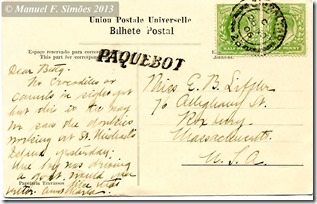 © Manuel F. Simões 2013
União Postale Universelle
Bilhete Postal
Espaço reservado para correspondencia
This part for correspondence
PAQUEBOT
HALF PENNY
Dear Betty:
No crocodiles or
camels in sight yet
but this is the way
we saw the donkeys
working at St. Michael's
Island, yesterday.
One boy was driving
a goat. Would
like that
Miss E. B. Siffler
76 Alleghany St.
Roxbury
Massachusetts
U.S.A.
Papelaria Travassos